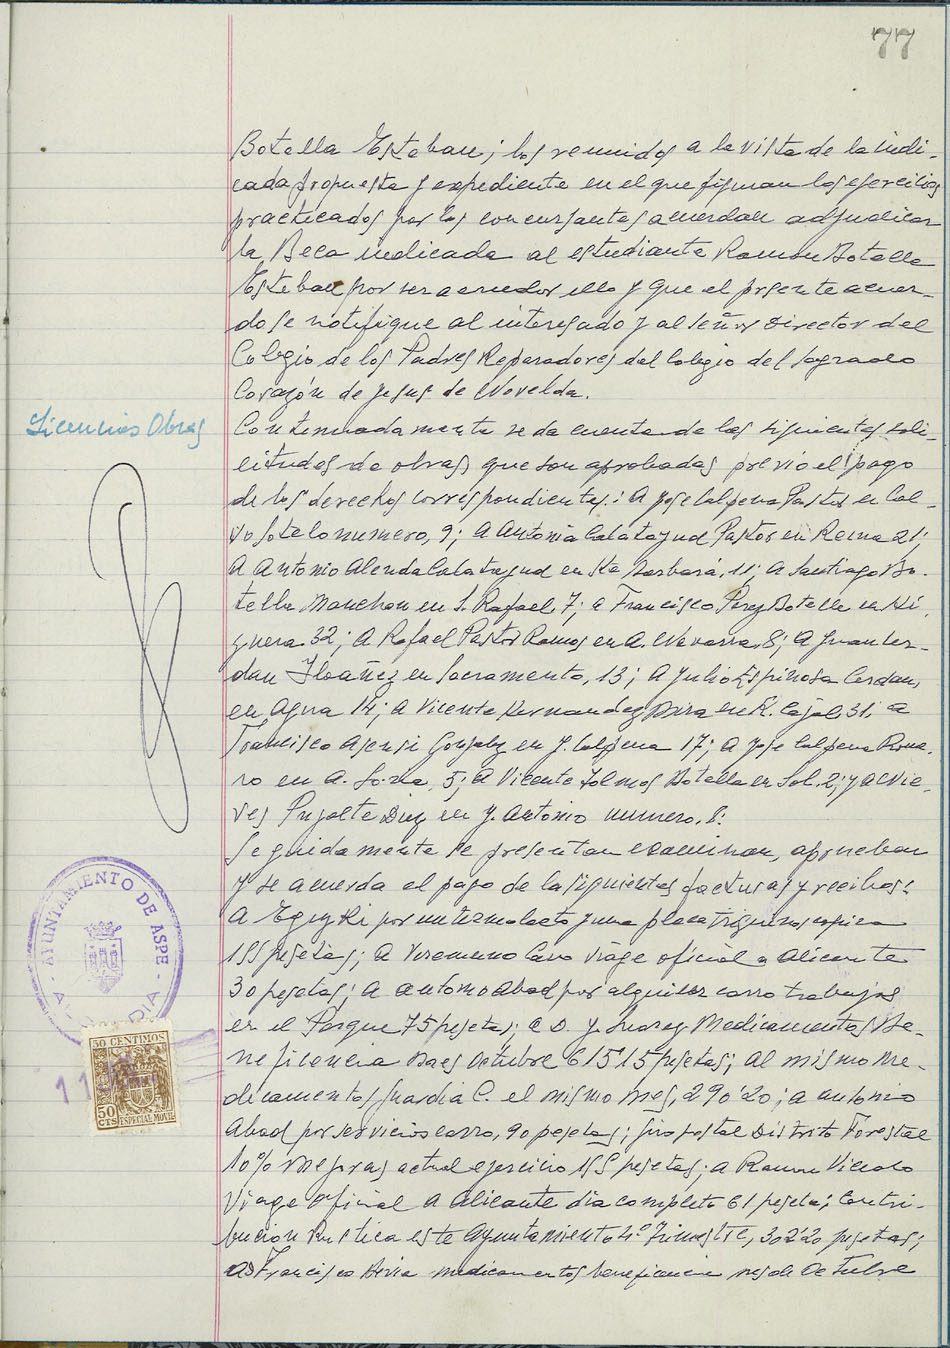 77
Botella Esteban; los reunidos a la vista de la indi-
cada propuesta y expediente en el que figuran los ejercicios
practicados por los concursantes acuerdan adjudicar
la Beca indicada al estudiante Ramón Botella
Esteban por ser acreedor ello y que el presente acuer-
do se notifique al interesado y al Señor Director del
Colegio de los Padres Reparadores del Colegio del Sagrado
Corazón de Jesus de Novelda.
Licencias Obras
Continuadamente se da cuenta de las siguientes soli-
citudes de obras, que son aprobadas previo el pago
de los derechos correspondientes: A Jose Calpena Pastor en Cal-
vo Sotelo numero, 9; a Antonia Calatayud Pastor en Reina 21;
A Antonio Alenda Calatayud en Sta Barbara, 11; a Santiago Bo-
tella Manchon en S. Rafael, 7; a Francisco Perez Botella en Hi-
guera 32; A Rafael Pastor Ramos en A. Navarra, 8; A Juan Cer-
dan Ibañez en Sacramento, 13; A Julio Espinosa Cerdan,
en Agua 14; a Vicente Hernandez en R. Cajal, 31, a
Francisco Asensi Gonzalez en J. Calpena 17; A Jose Calpena Rome-
ro en A. Soria, 5; a Vicente Botella en Sol, 2; y a Nie-
ves Pujalte Diez en J. Antonio numero, 8.
Seguidamente se presentan examinan, aprueban
y se acuerda el pago de la siguientes facturas y recibos:
A por un termo y una placa
155 pesetas; a Cava viage oficial a Alicante
30 pesetas; a Antonio Abad por alquiler carro trabajos
en el Parque 75 pesetas; a D. J. Suarez Medicamentos Be-
neficencia mes Octubre 615'15 pesetas; al mismo me-
dicamentos Guardia C. el mismo mes, 290'20; a Antonio
Abad por servicios carro, 90 pesetas; giro postal Distrito Forestal
10% mejoras actual ejercicio 155 pesetas; a Ramon Vicedo
Viage oficial a Alicante dia completo 61 peseta; Contri-
bucion Rustica este Ayuntamiento 4º Trimestre, 302'20 pesetas;
a D Francisco medicamentos beneficencia mes de Octubre
AYUNTAMIENTO DE ASPE
50 CENTIMOS
50
CTS
ESPECIAL MOVIL